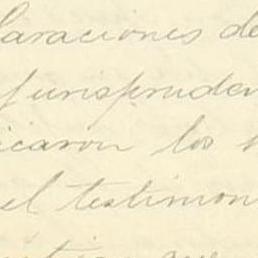 laraciones de
Jurispruden
icaron los
el testimon
que